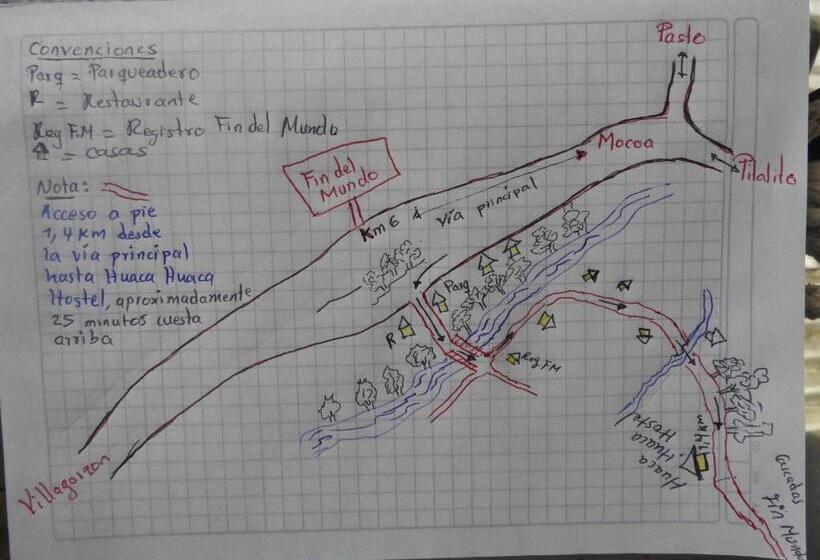 Convenciones
Parq = Parqueadero
R = Restaurante
Reg F.M = Registro Fin del Mundo
= casas
Nota:
Acceso a pie
1,4 Km desde
la vía principal
hasta Huaca Huaca
Hostel, aproximadamente
25 minutos cuesta
arriba
Pasto
Mocoa
Pitalito
Fin del
Mundo
Km 6
vía principal
Parq
R
Reg FM
Huaca
Huaca
Hostel
1,4 km
Villagarzon
Cascadas
Fin Mundo